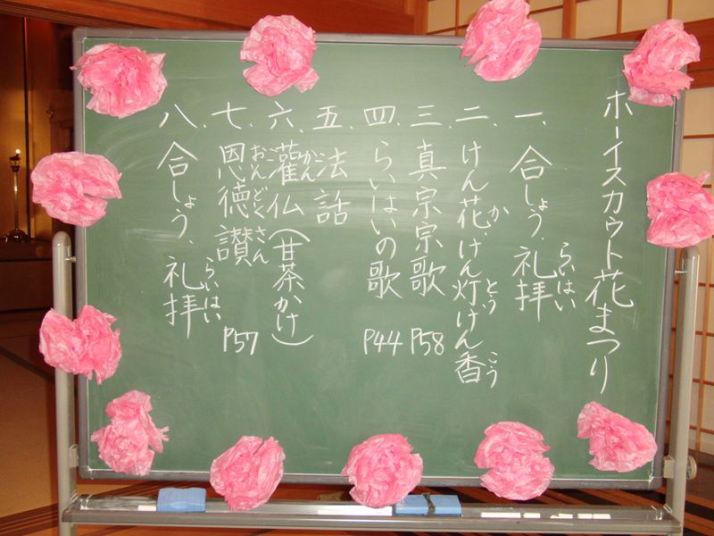 ホーイスカウト花まつり
一、合しょう、礼拝
らいはい
二、けん花、けん灯けん香
か とう こう
三、真宗宗歌 P58
四、らいはいの歌 P44
五、法話
六、灌仏(甘茶かけ)
かん
七、恩徳讃 P57
おんどくさん
八、合しょう、礼拝
らいはい